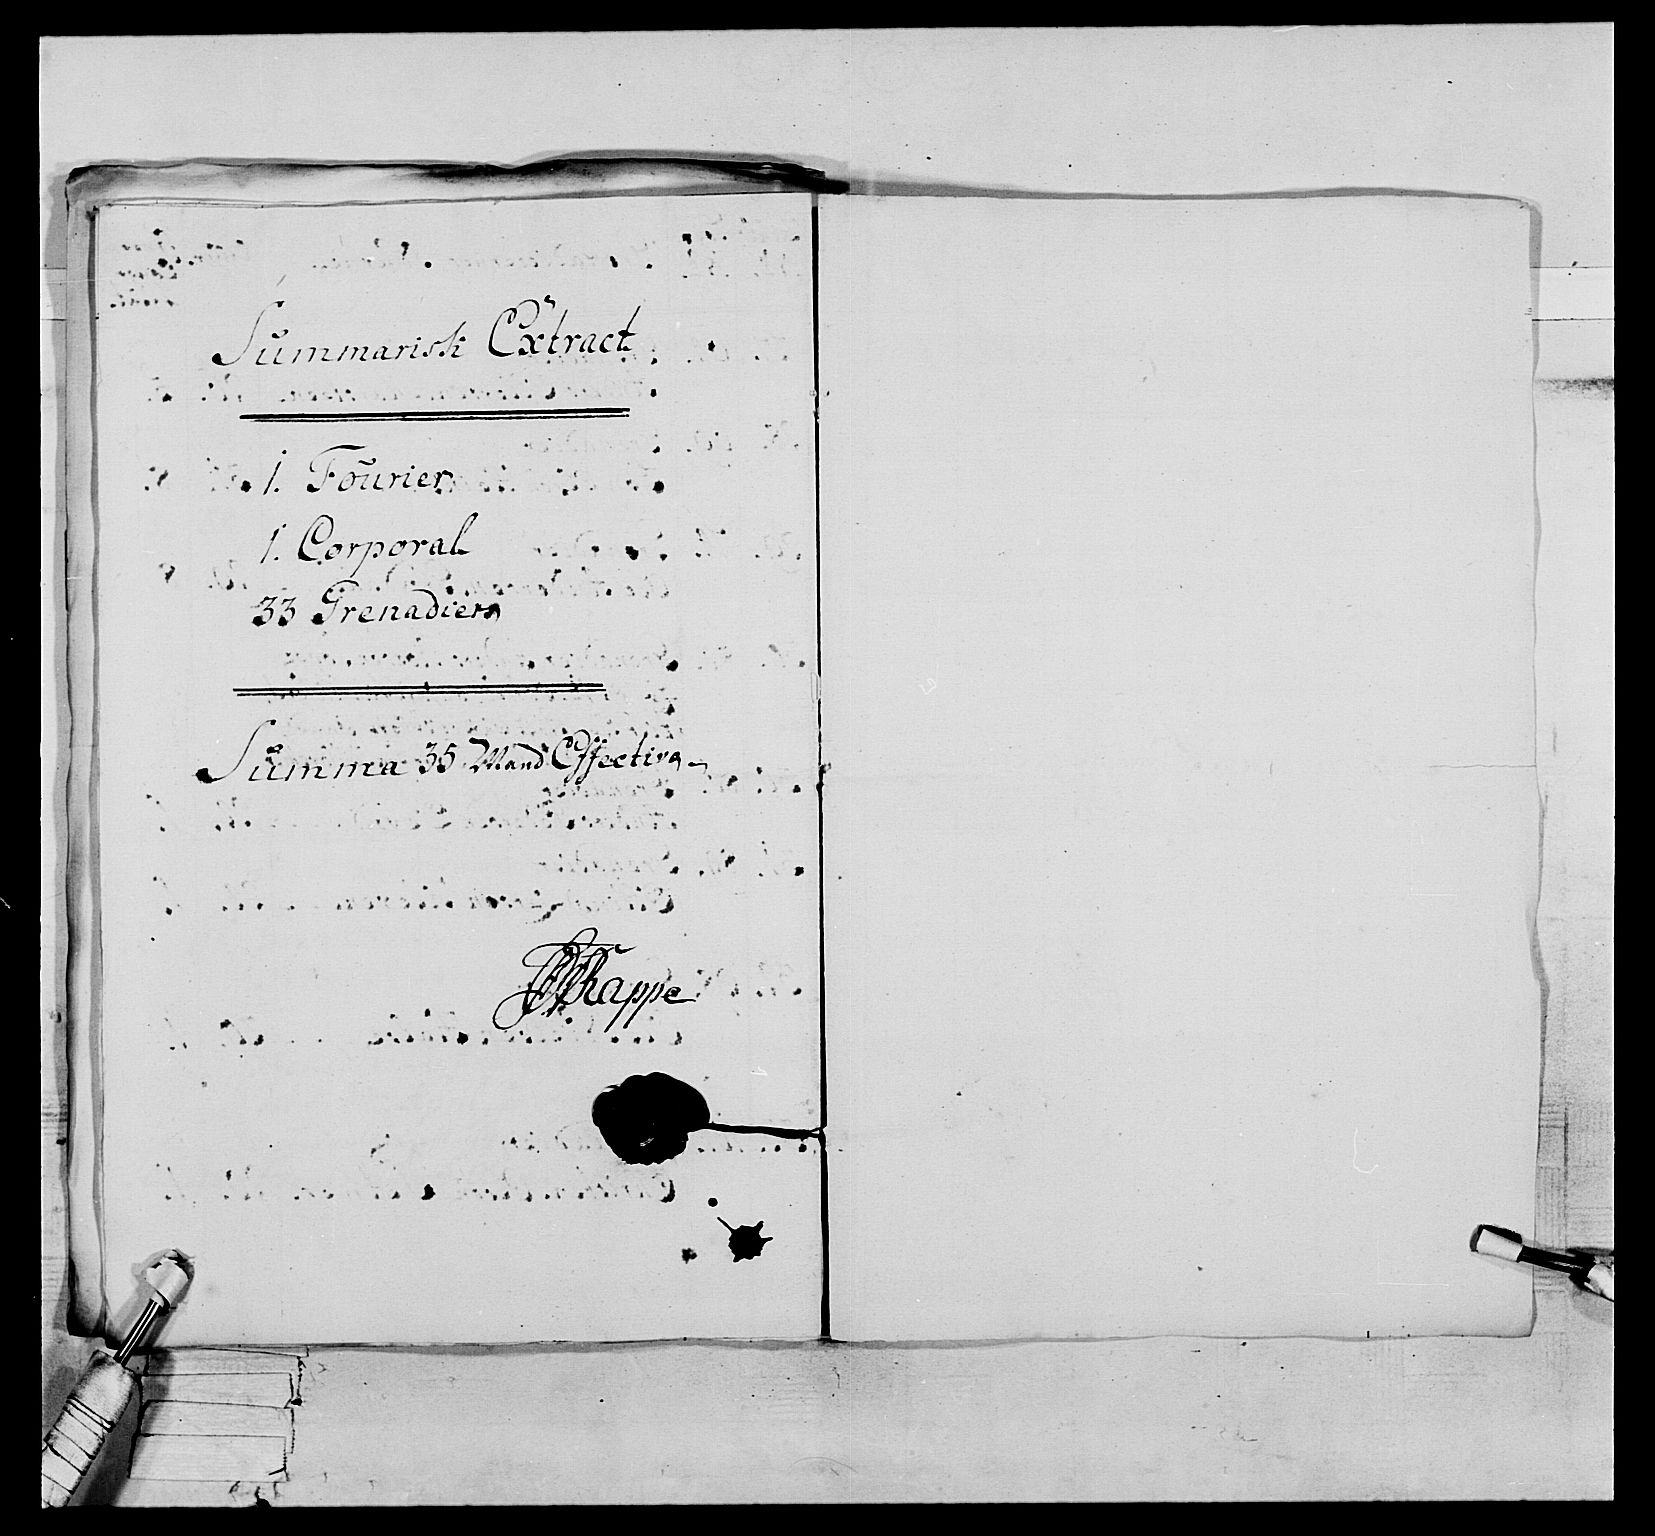 Summarisk Extract
1. Fourier
1. Corporal
33 Grenadiers
Summa 35 Mand Effective